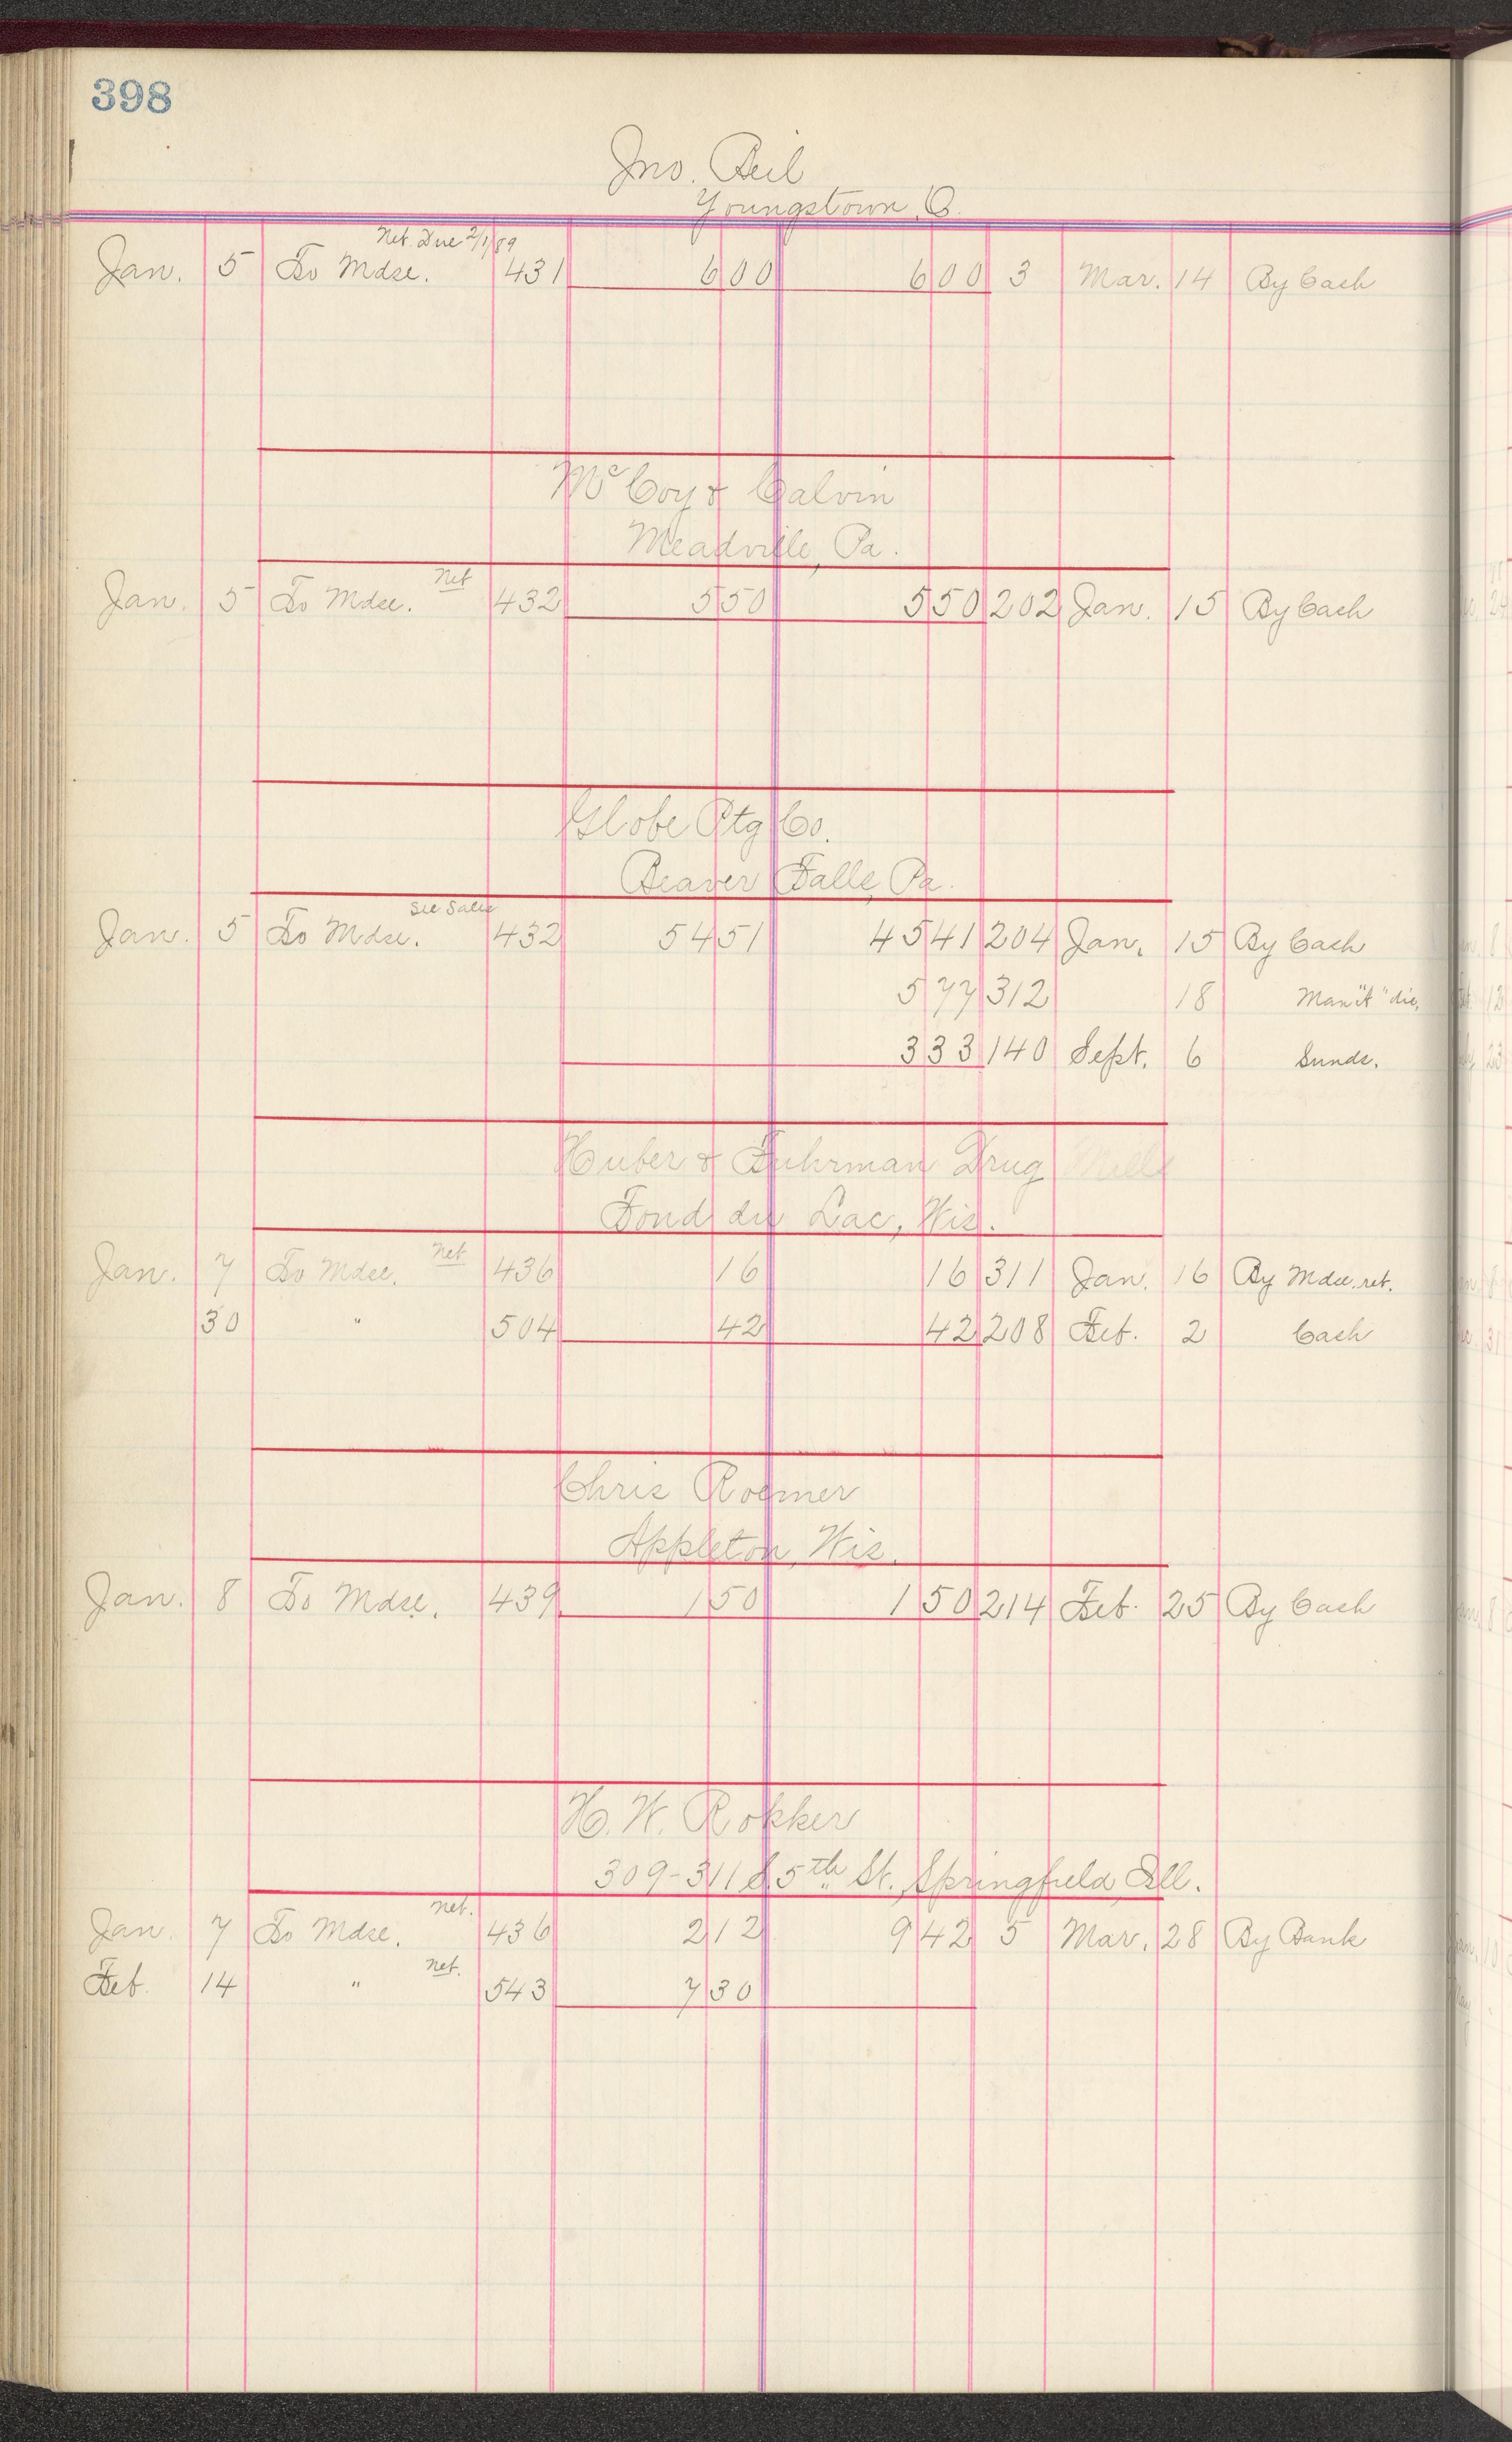 398
Jno. Beil
Youngstown, O.
Net Due 2/1/89
Jan. 5 To Mdse. 431 6 00 6 00 3 Mar. 14 By Cash
McCoy & Calvin
Meadville, Pa.
Net
Jan. 5 To Mdse. 432 5 50 5 50 202 Jan. 15 By Cash
Globe Ptg Co.
Beaver Falls, Pa.
See Sales
Jan. 5 To Mdse. 432 54 51 45 41 204 Jan. 15 By Cash
5 77 312 18 Man "A" dis.
3 33 140 Sept. 6 Sunds.
Huber & Fuhrman Drug Mills
Fond du Lac, Wis.
Jan. 7 To Mdse. Net 436 16 16 311 Jan. 16 By Mdse. ret.
30 " 504 42 42 208 Feb. 2 Cash
Chris Roemer
Appleton, Wis.
Jan. 8 To Mdse. 439 1 50 1 50 214 Feb. 25 By Cash
H. W. Rokker
309-311 S. 5th St., Springfield, Ill.
net.
Jan. 7 To Mdse. 436 2 12 9 42 5 Mar. 28 By Bank
Feb. 14 " net. 543 7 30